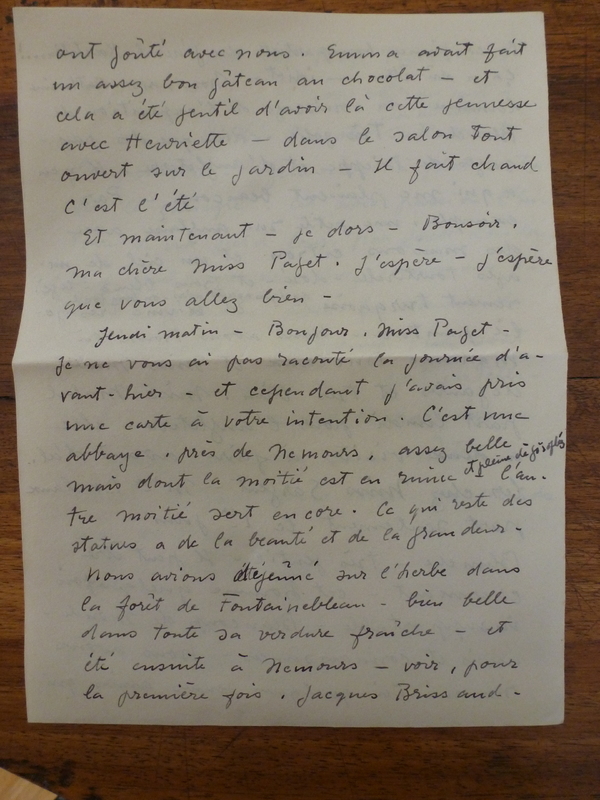 ont goûté avec nous. Emma avait fait
un assez bon gâteau au chocolat – et
cela a été gentil d'avoir là cette jeunesse
avec Henriette – dans le salon tout
ouvert sur le jardin – Il fait chaud
C'est l'été
Et maintenant – je dors – Bonsoir.
ma chère Miss Paget. J'espère – j'espère
que vous allez bien –
Jeudi matin – Bonjour. Miss Paget –
Je ne vous ai pas raconté la journée d'a-
vant-hier – et cependant j'avais pris
une carte à votre intention. C'est une
abbaye. près de Nemours, assez belle
mais dont la moitié est en ruine et pleine de l'au-
tre moitié sert encore. Ce qui reste des
statues a de la beauté et de la grandeur –
Nous avions déjeûné sur l'herbe dans
la forêt de Fontainebleau – bien belle
dans toute sa verdure fraîche – et
été ensuite à Nemours – voir, pour
la première fois. Jacques Brissaud –